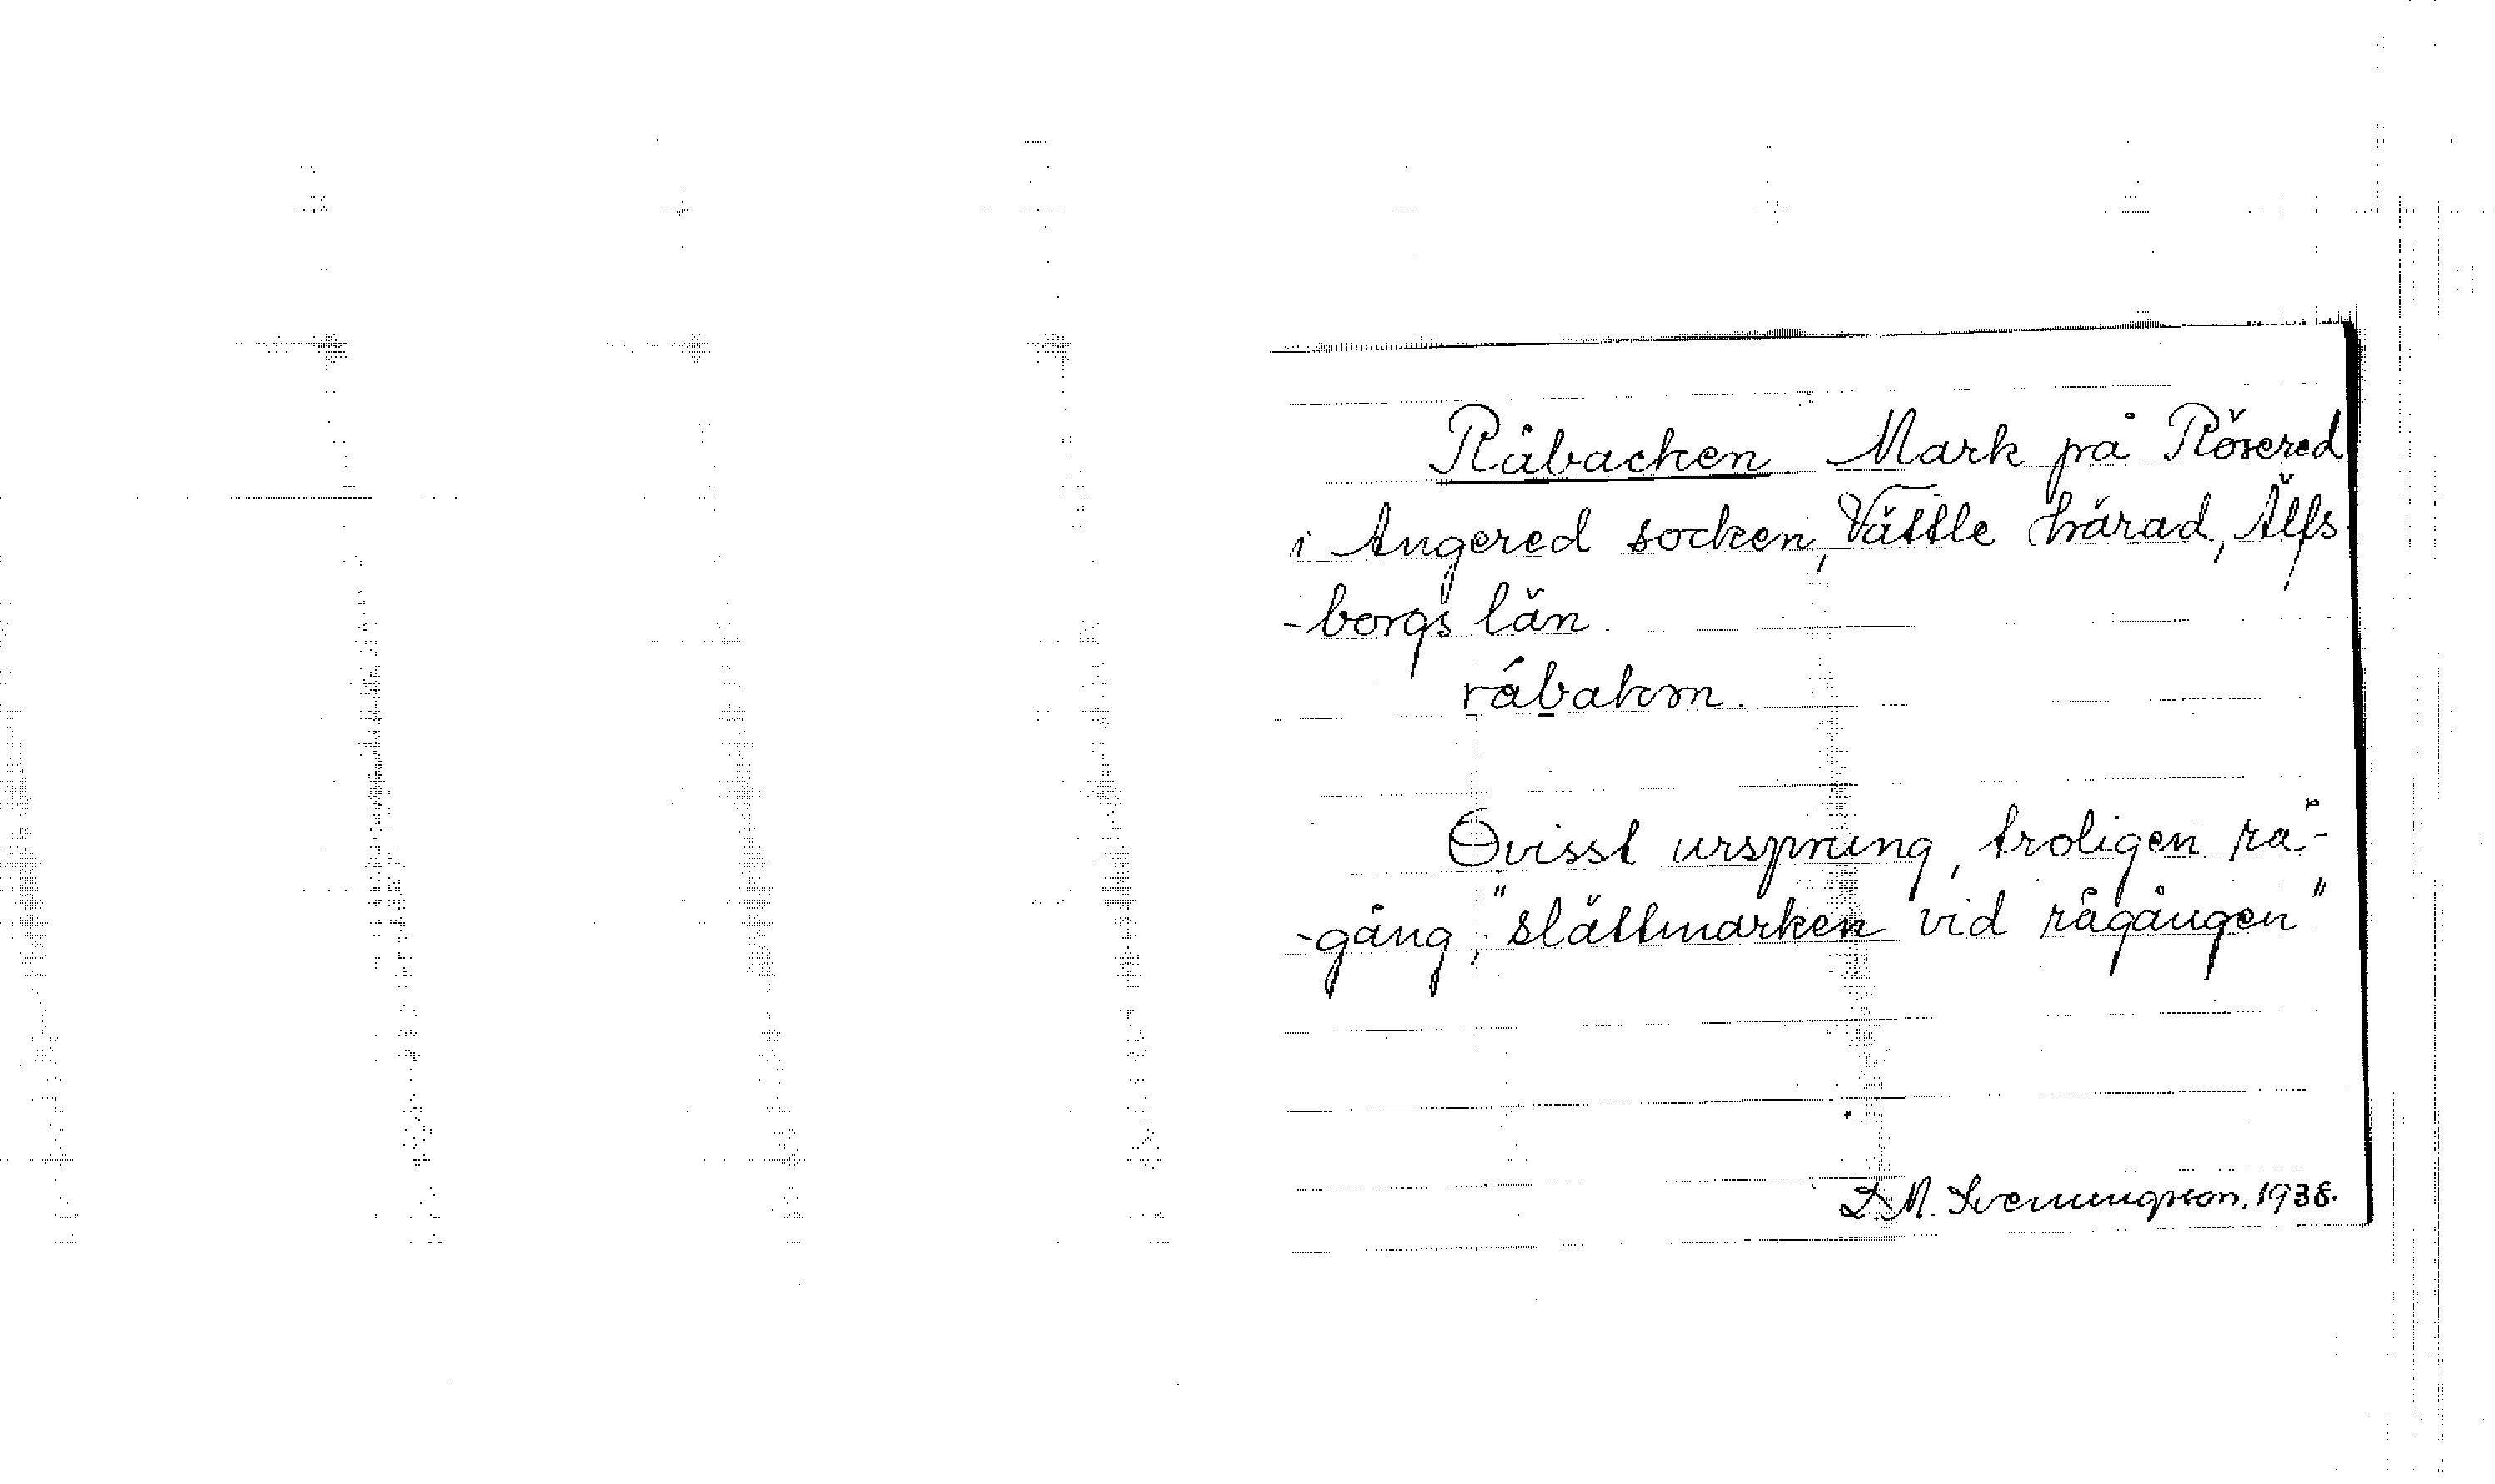 Råbacken. Mark på Rösered
i Angered socken, Vättle härad, Älfs-
-borgs län.
råbakɔn.
Ovisst ursprung, troligen rå-
-gång, "slättmarken vid rågången"
D.M. Svenungsson. 1938.